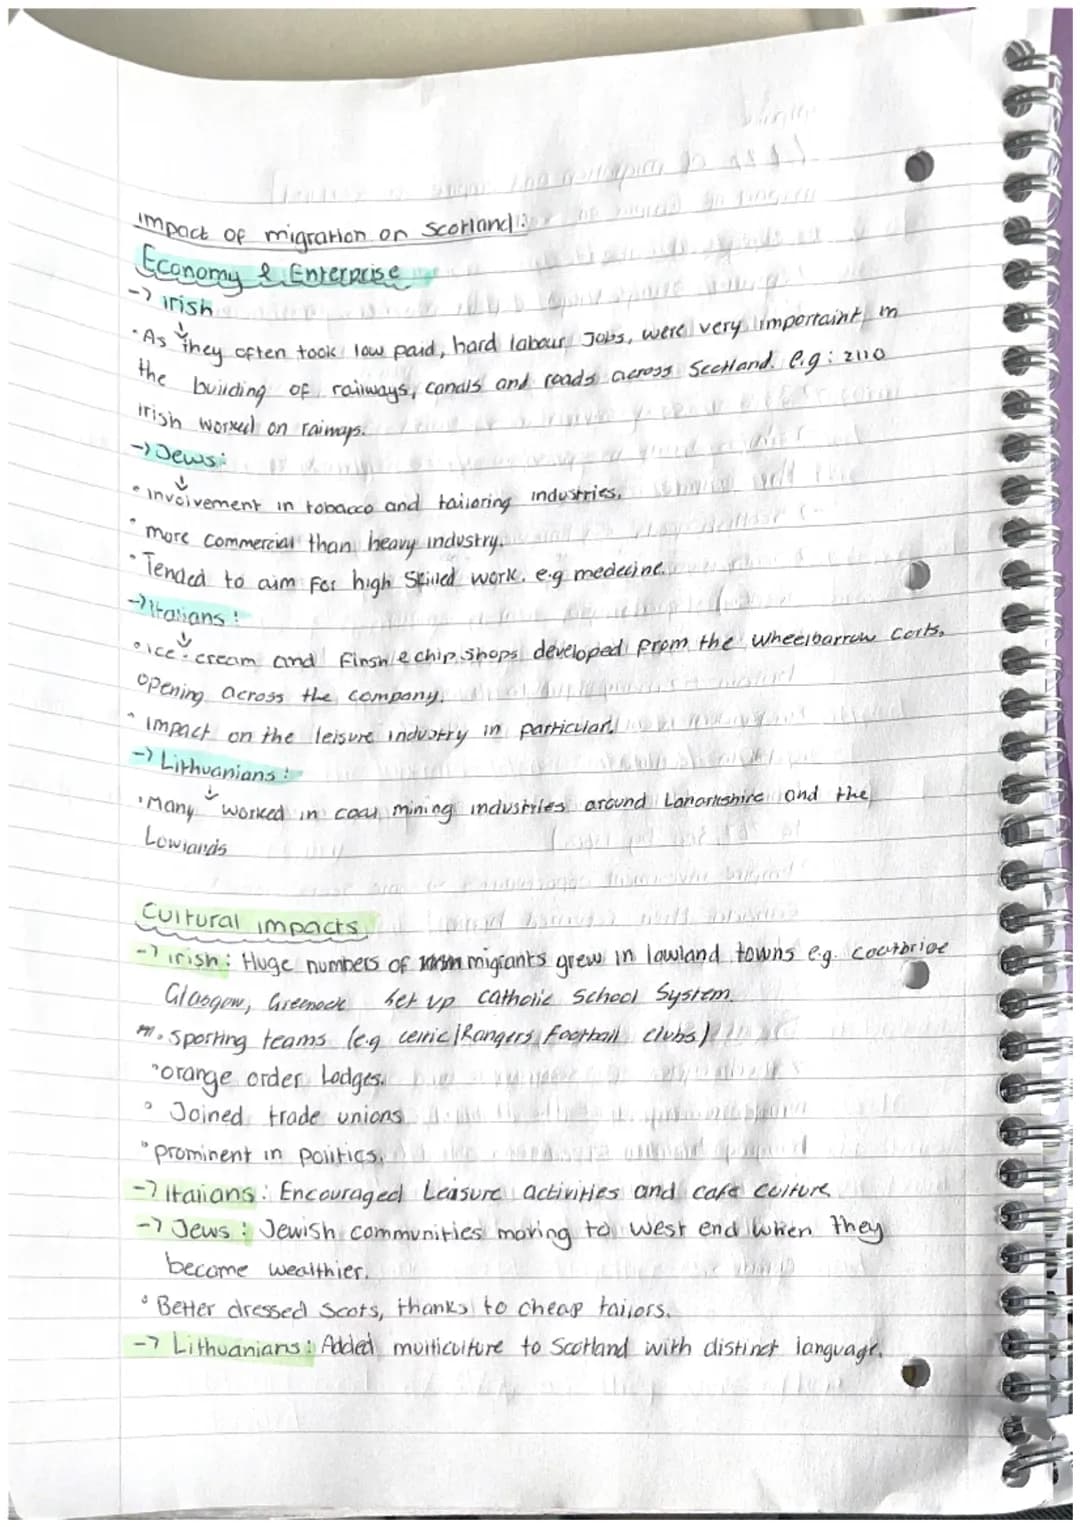 Impact of migration on Scotland:
Economy & Enterprise
-> Irish
• As they often took low paid, hard labour Jobs, were very importaint in
the building of railways, canals and roads across Scotland. e.g: 2110
Irish worked on raiways.
-> Jews:
• involvement in tobacco and tailoring industries.
• more commercial than heavy industry.
• Tended to aim For high skilled work. e.g medecine.
-> Italians:
• ice-cream and Finsh & chip shops developed from the wheelbarrow carts,
opening across the company.
• impact on the leisure industry in particular.
-> Lithuanians:
• Many worked in coal mining industries around Lanarkshire and the
Lowlands
Cultural impacts
-> irish: Huge numbers of migrants grew in lowland towns e.g. coatbrige
Glasgow, Greenock set up catholic School System.
• Sporting teams (e.g celtic/Rangers Football clubs)
• orange order Lodges.
• Joined trade unions
• prominent in politics.
-> Italians: Encouraged Leasure activities and cafe culture
-> Jews: Jewish communities moving to west end when they
become wealthier.
• Better dressed Scots, thanks to cheap tailors.
-> Lithuanians: Added multiculture to Scotland with distinct language.